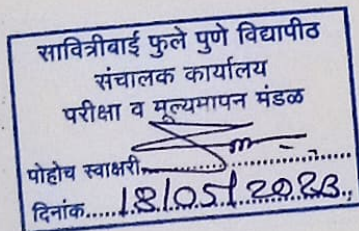 सावित्रीबाई फुले पुणे विद्यापीठ
संचालक कार्यालय
परीक्षा व मूल्यमापन मंडळ
पोहोच स्वाक्षरी..........
दिनांक.....18/05/2023.